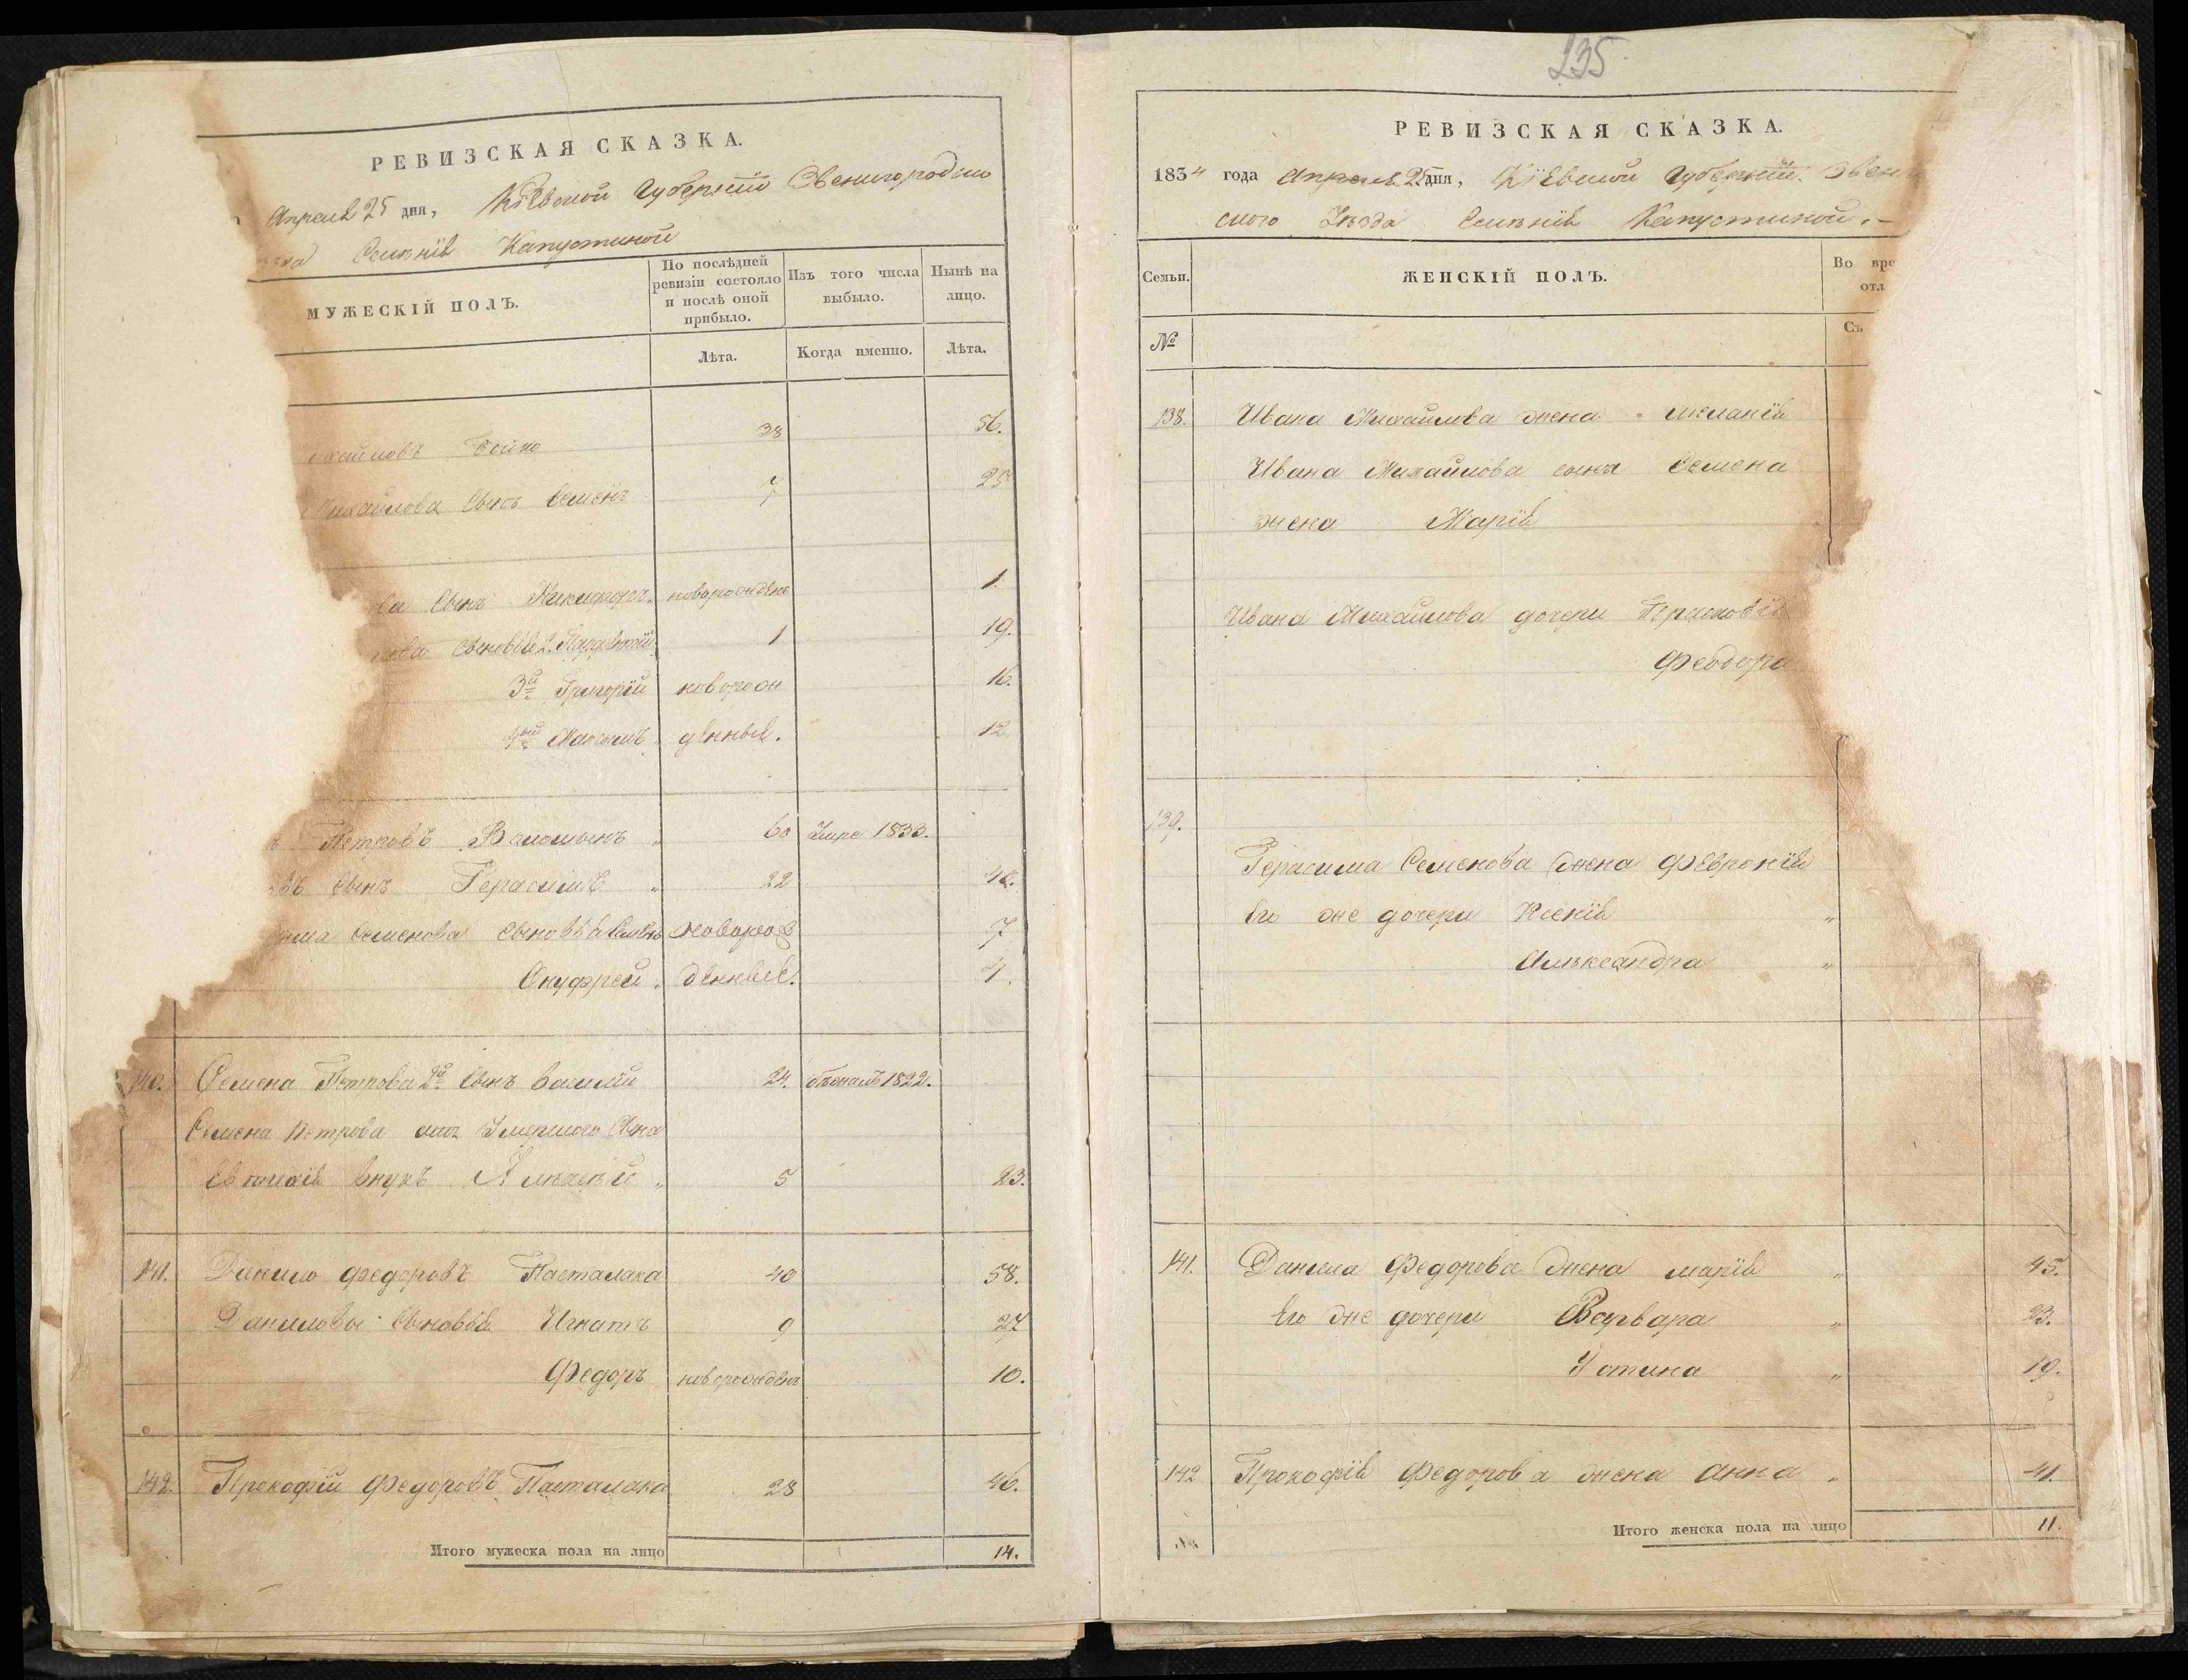 РЕВИЗСКАЯ СКАЗКА.
Апреля 25 дня, Кіевской Губерніи Звенигородско
Селенія Капустиной
МУЖЕСКІЙ ПОЛЪ.
По послѣдней ревизіи состояло и послѣ оной прибыло.
Изъ того числа выбыло.
Нынѣ на лицо.
Лѣта.
Когда именно.
Лѣта.
хайловъ Бойко 38 56.
Михайлова Сынъ Семенъ 7 25
ва Сынъ Никифоръ. новорожденъ 1.
Сыновья 1 19.
3й Григорій новорож 16.
4ый Максимъ денныя. 12.
Петровъ 60 Умре 1833.
въ Сынъ Герасимъ „ 22 40.
сима Семенова Сыновья Новорож 7
Онуфрей „ денныя. 4.
140. Семена Петрова 2й Сынъ Василій 24. бѣжалъ 1822.
Семена Петрова отъ Умершого Сына
внукъ Алексѣй „ 5 23.
141. Данило Федоровъ Пасталака 40 58.
Данилова Сыновья Игнатъ 9 27
Федоръ новорожденъ 10.
142. Прокофій Федоровъ Пасталака 28 46.
Итого мужеска пола на лицо 14.
235
РЕВИЗСКАЯ СКАЗКА.
1834 года Апреля 25 дня, Кіевской Губерніи. Звен
ского Уезда Селенія Капустиной.–
Семьи.
ЖЕНСКІЙ ПОЛЪ.
Во вре
отл
№
Съ
138. Ивана Михайлова жена меланія
Ивана Михайлова сына Семена
жена Марія
Ивана Михайлова дочери Прасковія
Феодора
139.
Герасима Семенова жена Февронія
Его же дочери Ксенія „
Александра „
141. Данила Федорова жена марія „ 45.
Его же дочери Варвара „ 23.
Устина „ 19.
142 Прокофія Федорова жена Анна „ 41.
Итого женска пола на лицо 11.